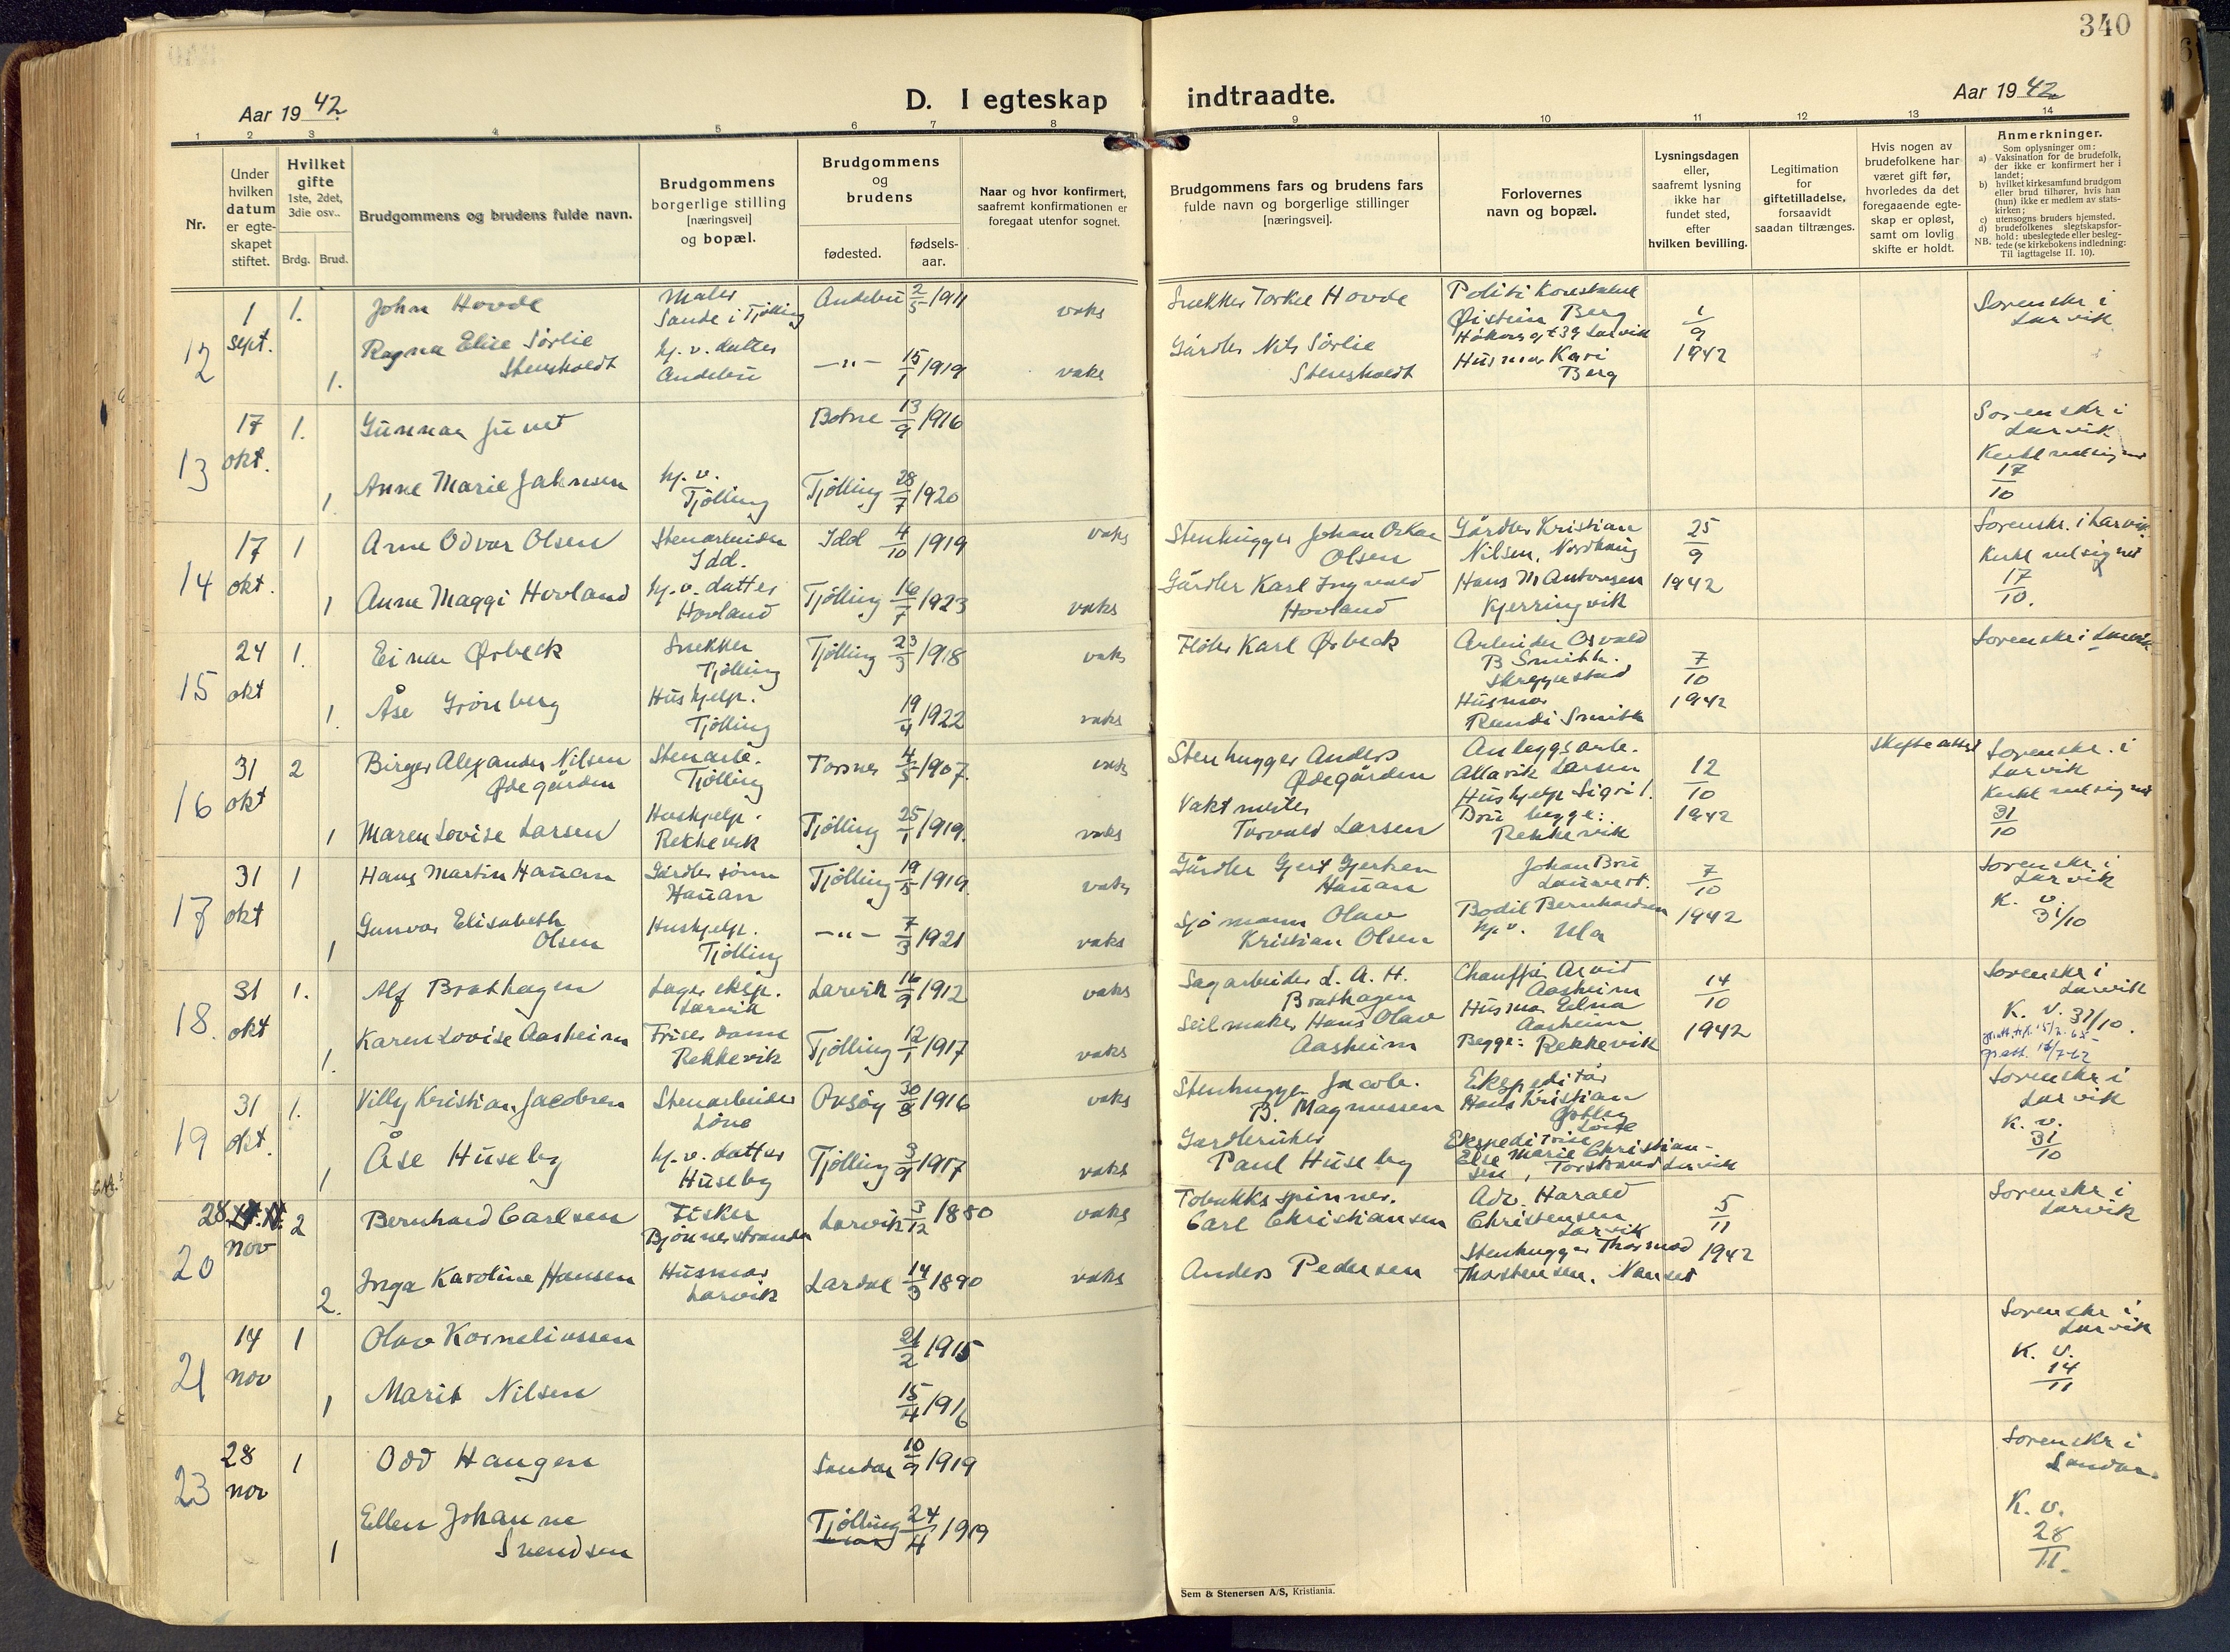 340
Aar 1942.
D. I egteskap indtraadte.
Aar 1942
1 2 3 4 5 6 7 8 9 10 11 12 13 14
Nr.
Under
hvilken
datum
er egte-
skapet
stiftet.
Hvilket
gifte
1ste, 2det,
3die osv..
Brdg. Brud.
Brudgommens og brudens fulde navn.
Brudgommens
borgerlige stilling
[næringsvei]
og bopæl.
Brudgommens
og
brudens
fødested.
fødsels-
aar.
Naar og hvor konfirmert,
saafremt konfirmationen er
foregaat utenfor sognet.
Brudgommens fars og brudens fars
fulde navn og borgerlige stillinger
[næringsvei].
Forlovernes
navn og bopæl.
Lysningsdagen
eller,
saafremt lysning
ikke har
fundet sted,
efter
hvilken bevilling.
Legitimation
for
giftetilladelse,
forsaavidt
saadan tiltrænges.
Hvis nogen av
brudefolkene har
været gift før,
hvorledes da det
foregaaende egte-
skap er opløst,
samt om lovlig
skifte er holdt.
Anmerkninger.
Som oplysninger om:
a) Vaksination for de brudefolk,
der ikke er konfirmert her i
landet;
b) hvilket kirkesamfund brudgom
eller brud tilhører, hvis han
(hun) ikke er medlem av stats-
kirken;
c) utensogns bruders hjemsted.
d) brudefolkenes slegtskapsfor-
hold: ubeslegtede eller besleg-
NB. tede (se kirkebokens indledning:
Til iagttagelse II. 10).
12
1 sept.
1.
John Hovde
Maler
Sande i Tjølling
Andebu 2/5 1911
vaks
Snekker Torkel Hovde
Politikonstabel
Øistein Berg
Håkonsgt 39 Larvik
1/9
1942
Sorenskr. i
Larvik
1.
Ragna Elise Sørlie
Stensholdt
hj. v. datter
Andebu
-"- 15/1 1919
vaks
Gårdbr Nils Sørlie
Stensholdt
Husmor Kari
Berg
13
17 okt.
1.
Gunnar Juvet
Botne 13/9 1916
Sorenskr i
Larvik
Kirkl velsignet
17/10
1
Anne Marie Jahnsen
hj. v.
Tjølling
Tjølling 28/7 1920
14
17 okt.
1
Arne Odvar Olsen
Stenarbeider
Idd.
Idd 4/10 1919
vaks
Stenhugger Johan Oskar
Olsen
Gårdbr Kristian
Nilsen, Nordhaug
25/9
1942
Sorenskr. i Larvik.
Kirkl velsignet
17/10.
1
Anne Maggi Hovland
hj. v. datter
Hovland
Tjølling 16/7 1923
vaks
Gårdbr Karl Ingvald
Hovland
Hans M Antonsen
Kjerringvik
15
24 okt
1.
Einar Ørbeck
Snekker
Tjølling
Tjølling 23/3 1918
vaks
Fløter Karl Ørbeck
Arbeider Osvald
B Smith.
Skreppestad
7/10
1942
Sorenskr i Larvik
1.
Åse Grønberg
Hushjelp.
Tjølling
19/4 1922
vaks
Husmor
Randi Smith
16
31 okt
2
Birger Alexander Nilsen
Ødegården
Stenarb.
Tjølling
Torsnes 4/5 1907.
vaks
Stenhugger Anders
Ødegården
Anleggsarb.
Allarik Larsen
12/10
1942
Skifte attest
Sorenskr. i
Larvik
Kirkl velsignet
31/10
1
Maren Lovise Larsen
Hushjelp.
Rekkevik
Tjølling 25/1 1919.
vaks
Vaktmester
Torvald Larsen
Hushjelp Sigrid.
Bru begge:
Rekkevik
17
31 okt
1
Hans Martin Hauan
Gårdbr sønn
Hauan
Tjølling 19/5 1919.
vaks
Gårdbr Gjert Gjertsen
Hauan
Johan Bru
7/10
1942
Sorenskr i
Larvik
K. v.
31/10
1
Gunvor Elisabeth
Olsen
Hushjelp.
Tjølling
-"- 7/3 1921
vaks
Sjømann Olav
Kristian Olsen
Bodil Bernhardsen
hj. v. Ula
18.
31 okt
1.
Alf Brathagen
Lager eksp.
Larvik
Larvik 16/9 1912
vaks
Sagarbeider L. A. H.
Brathagen
Chauffør Arvid
Aasheim
14/10
1942
Sorenskr i
Larvik
K. v. 31/10.
1.
Karen Lovise Aasheim
Friser dame
Rekkevik
Tjølling 12/1 1917
vaks
Seilmaker Hans Olav
Aasheim
Husmor Edna
Aasheim
Begge: Rekkevik
19
31 okt.
1.
Villy Kristian Jacobsen
Stenarbeider
Løve
Onsøy 30/8 1916
vaks
Stenhugger Jacob.
B. Magnussen
Ekspeditør
Hans Kristian
Østby
Sorenskr i
Larvik
K. v.
31/10
1
Åse Huseby
hj. v. datter
Huseby
Tjølling 3/9 1917
vaks
Gardbruker
Paul Huseby
Ekspeditrise
Else Marie Christian-
sen, Torstrand Larvik
20
28 nov
2
Bernhard Carlsen
Fisker
Bjønnesstranda
Larvik 3/12 1880
vaks
Tobakksspinner.
Carl Christiansen
Adv. Harald
Christensen
Larvik
5/11
1942
Sorenskr i
Larvik
2.
Inga Karoline Hansen
Husmor
Larvik
Lardal 14/3 1890
vaks
Anders Pedersen
Stenhugger Thormod
Thorstensen. Nanset
21
14 nov
1
Olav Korneliussen
21/2 1915
Sorenskr i
Larvik
K. v.
14/11
1
Marit Nilsen
15/4 1916
23
28 nov
1
Odd Haugen
Sandar 10/9 1919
Sorenskr i
Sandar.
K. v.
28/11.
1
Ellen Johanne
Svendsen
Tjølling 24/4 1919
Sem & Stenersen A/S, Kristiania.